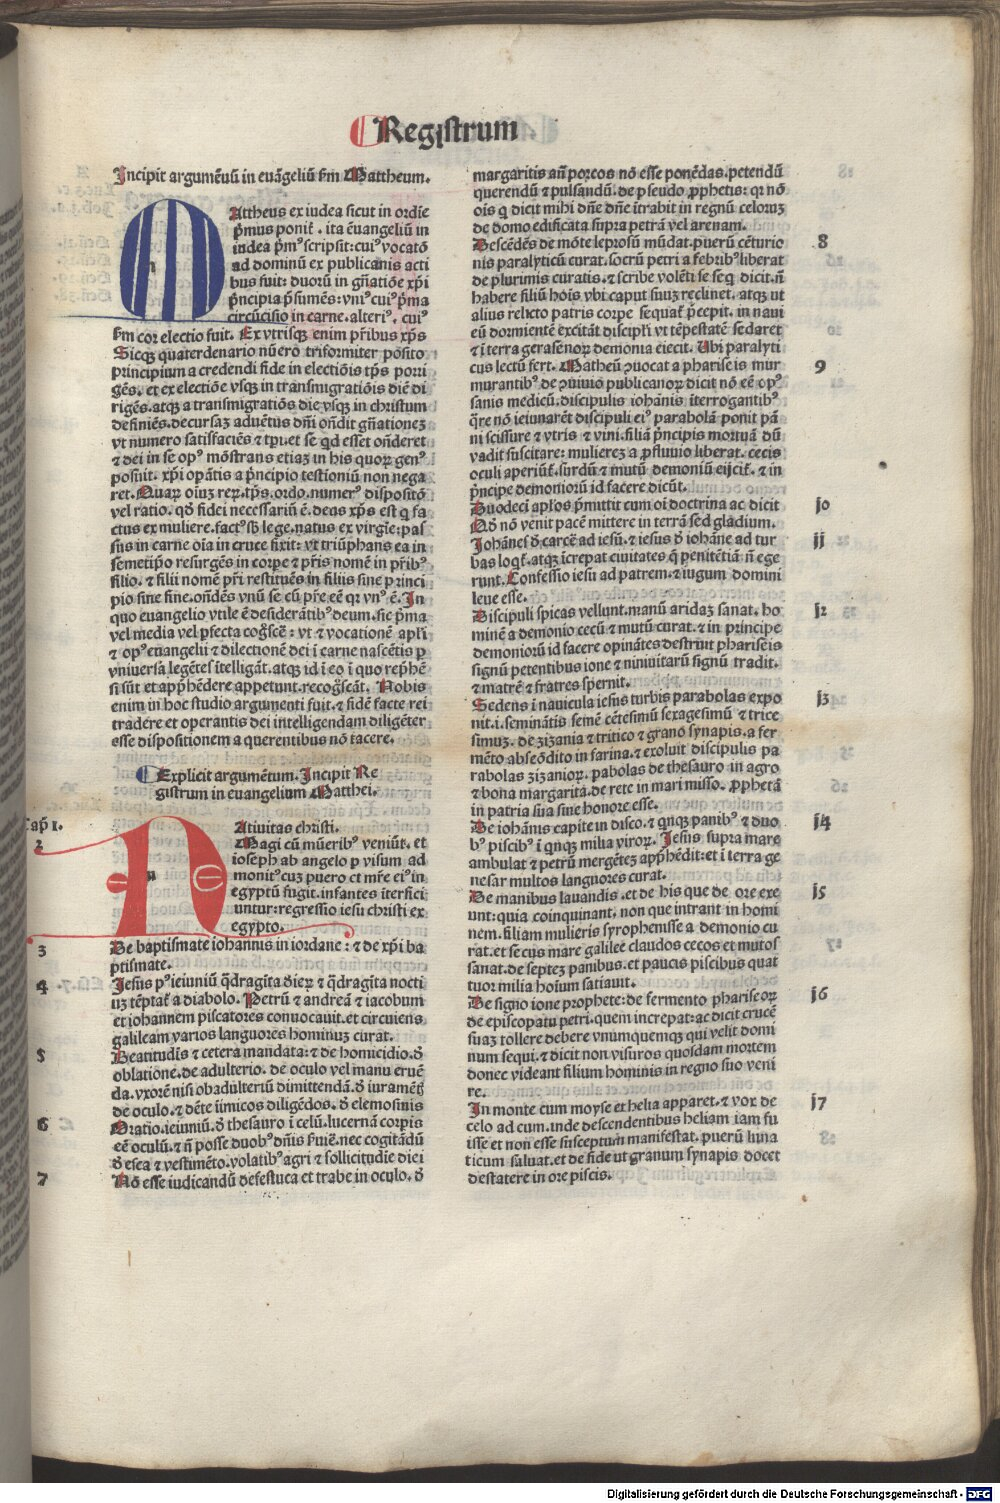 Registrum
Incipit argumētū in euāgeliū ẜm Mattheum.
MAttheus ex iudea sicut in ordīe
p̄mus ponit᷑. ita ēuangeliū in
iudea p̄mꝰ scripsit: cuiꝰ vocatō
ad dominū ex publicanis acti
bus fuit: duorū in gñatiōe xp̄i
p̄ncipia p̄sumēs: vniꝰ cuiꝰ p̄ma
circūcisio in carne. alteriꝰ, cuiꝰ
ẜm cor electio fuit. Ex vtrisqꝫ enim pr̄ibus xp̄s
Sicqꝫ quaterdenario nūero triformiter pōsito
principium a credendi fide in electiōis tp̄s porri
gēs. et ex electiōe vsqꝫ in transmigratiōis diē di
rigēs. atqꝫ a transmigratiōs die vsqꝫ in christum
definiēs. decursaꝫ aduētus dn̄i on̄dit gñationeꝫ
vt numero satisfaciēs ⁊ tp̄i. et se qd̄ esset on̄deret
⁊ dei in se opꝰ mōstrans etiaꝫ in his quoꝝ genꝰ
posuit. xp̄i opātis a p̄ncipio testioniū non nega
ret. Quaꝝ oiuꝫ reꝝ. tp̄s. ordo. numerꝰ dispositō
vel ratio. qd̄ fidei necessariū ē. deus xp̄s est q̄ fa
ctus ex muliere. factꝰ sb̄ lege. natus ex virgīe: pas
sus in carne oīa in cruce fixit: vt triūphans ea in
semetip̄o resurgēs in corpe ⁊ pr̄is nomē in pr̄ibꝰ
filio. ⁊ filii nomē pr̄i restituēs in filiis sine princi
pio sine fine. on̄dēs vnū se cū pr̄e eē qꝛ vnꝰ ē. In
quo euangelio vtile ē desiderātibꝰ deum. sic p̄ma
vel media vel ꝑfecta cog̃sce᷑: vt ⁊ vocationē apl̄i
⁊ opꝰ euangelii ⁊ dilectionē dei ī carne nascētis ꝑ
vniuersa legētes ītelligāt. atqꝫ id ī eo ī quo rep̄hē
si sūt et app̄hēdere appetunt. recog̃scāt. Nobis
enim in hoc studio argumenti fuit. ⁊ fidē facte rei
tradere et operantis dei intelligendam diligēter
esse dispositionem a querentibus nō tacere.
Explicit argumētum. Incipit Re
gistrum in euangelium Matthei.
Cap̄ 1. NAtiuitas christi.
2 Magi cū mūeribꝰ veniūt. et
ioseph ab angelo p visum ad
monitꝰ cuꝫ puero et mr̄e eiꝰ in
egyptū fugit. infantes īterfici
untur: regressio iesu christi ex
egypto.
3 De baptismate iohannis in iordane: ⁊ de xp̄i ba
ptismate.
4 Jesus pꝰ ieiuniū q̄dragīta dieꝝ ⁊ q̄dragīta nocti
uꝫ tēptat᷑ a diabolo. Petrū ⁊ andreā ⁊ iacobum
et iohannem piscatores conuocauit. et circuiens
galileam varios languores hominuꝫ curat.
5 Beatitudīs ⁊ cetera mandata: ⁊ de homicidio. d̄
oblatione. de adulterio. de oculo vel manu eruē
da. vxorē nisi ob adulteriū dimittendā. d̄ iuramēt̄
de oculo. ⁊ dēte īimicos diligēdos. d̄ elemosinis
6 Oratio. ieiuniū. d̄ thesauro ī celū. lucernā corpis
eē oculū. ⁊ ñ posse duobꝰ dn̄is fuiē. nec cogitādū
d̄ esca ⁊ vestimēto. volatibꝰ agri ⁊ sollicitudīe diei
7 Nō esse iudicandū de festuca et trabe in oculo. d̄
margaritis an̄ porcos nō esse ponēdas. petendū
querendū ⁊ pulsandū. de pseudo ꝓphetis: qꝛ nō
ois q̄ dicit mihi dn̄e dn̄e ītrabit in regnū celoruꝫ
de domo edificata supra petrā vel arenam.
8 Descēdēs de mōte leprosū mūdat. puerū cēturio
nis paralyticū curat. socrū petri a febribꝰ liberat
de plurimis curatis. ⁊ scribe volēti se seq̄ dicit. ñ
habere filiū hois vbi caput suuꝫ reclinet. atqꝫ ut
alius relicto patris corpe sequat᷑ p̄cepit. in naui
eū dormientē excitāt discipl̄i vt tēpestatē sedaret
⁊ ī terra gerasenoꝝ demonia eiecit. Ubi paralyti
9 cus lectū fert. Matheū ꝯuocat a phariseis mur
murantibꝰ de ꝯuiuio publicanoꝝ dicit nō eē opꝰ
sanis medicū. discipulis iohanis īterrogantibꝰ
q̄re nō ieiunarēt discipuli eiꝰ parabolā ponit pā
ni scissure ⁊ vtris ⁊ vini. filiā p̄ncipis mortuā dū
vadit suscitare: muliereꝫ a ꝓfluuio liberat. cecis
oculi aperiūt᷑. surdū ⁊ mutū demoniū eijcit. ⁊ in
p̄ncipe demonioruꝫ id facere dicūt.
10 Duodeci apl̄os p̄mittit cum oi doctrina ac dicit
Qd̄ nō venit pacē mittere in terrā sed gladium.
11 Johānes d̄ carcē ad iesū. ⁊ iesus d̄ iohāne ad tur
bas loqt᷑. atqꝫ īcrepat ciuitates q̄ penitētiā ñ ege
runt. Confessio iesu ad patrem. ⁊ iugum domini
leue esse.
12 Discipuli spicas vellunt. manū aridaꝫ sanat. ho
minē a demonio cecū ⁊ mutū curat. ⁊ in principe
demoniorū id facere opinātes destruit phariseis
signū petentibus ione ⁊ niniuitarū signū tradit.
⁊ matrē ⁊ fratres spernit.
13 Sedens ī nauicula iesus turbis parabolas expo
nit. i. seminātis semē cētesimū sexagesimū ⁊ trice
simuꝫ. de zizania ⁊ tritico ⁊ grano synapis. a fer
mēto absēodito in farina. ⁊ exoluit discipulis pa
rabolas zizanioꝝ. pabolas de thesauro in agro
⁊ bona margarita. de rete in mari misso. ꝓphetā
in patria sua sine honore esse.
14 De iohānis capite in disco. ⁊ qnqꝫ panibꝰ ⁊ duo
bꝰ piscibꝰ ī qnqꝫ milia viroꝝ. Jesus supra mare
ambulat ⁊ petrū mergēteꝫ app̄hēdit: et ī terra ge
nesar multos languores curat.
15 De manibus lauandis. et de his que de ore exe
unt: quia coinquinant, non que intrant in homi
nem. filiam mulieris syrophenisse a demonio cu
rat. et secus mare galilee claudos cecos et mutos
sanat. de septeꝫ panibus. et paucis piscibus quat
tuor milia hoium satiauit.
16 De signo ione prophete: de fermento phariseoꝝ
de episcopatu petri. quem increpat: ac dicit crucē
suaꝫ tollere debere vnumquemqꝫ qui velit domi
num sequi. ⁊ dicit non visuros quosdam mortem
donec videant filium hominis in regno suo veni
re.
17 In monte cum moyse et helia apparet. ⁊ vox de
celo ad eum. unde descendentibus heliam iam fu
isse et non esse susceptum manifestat. puerū luna
ticum saluat. et de fide ut granum synapis docet
de statere in ore piscis.
Digitalisierung gefördert durch die Deutsche Forschungsgemeinschaft - DFG